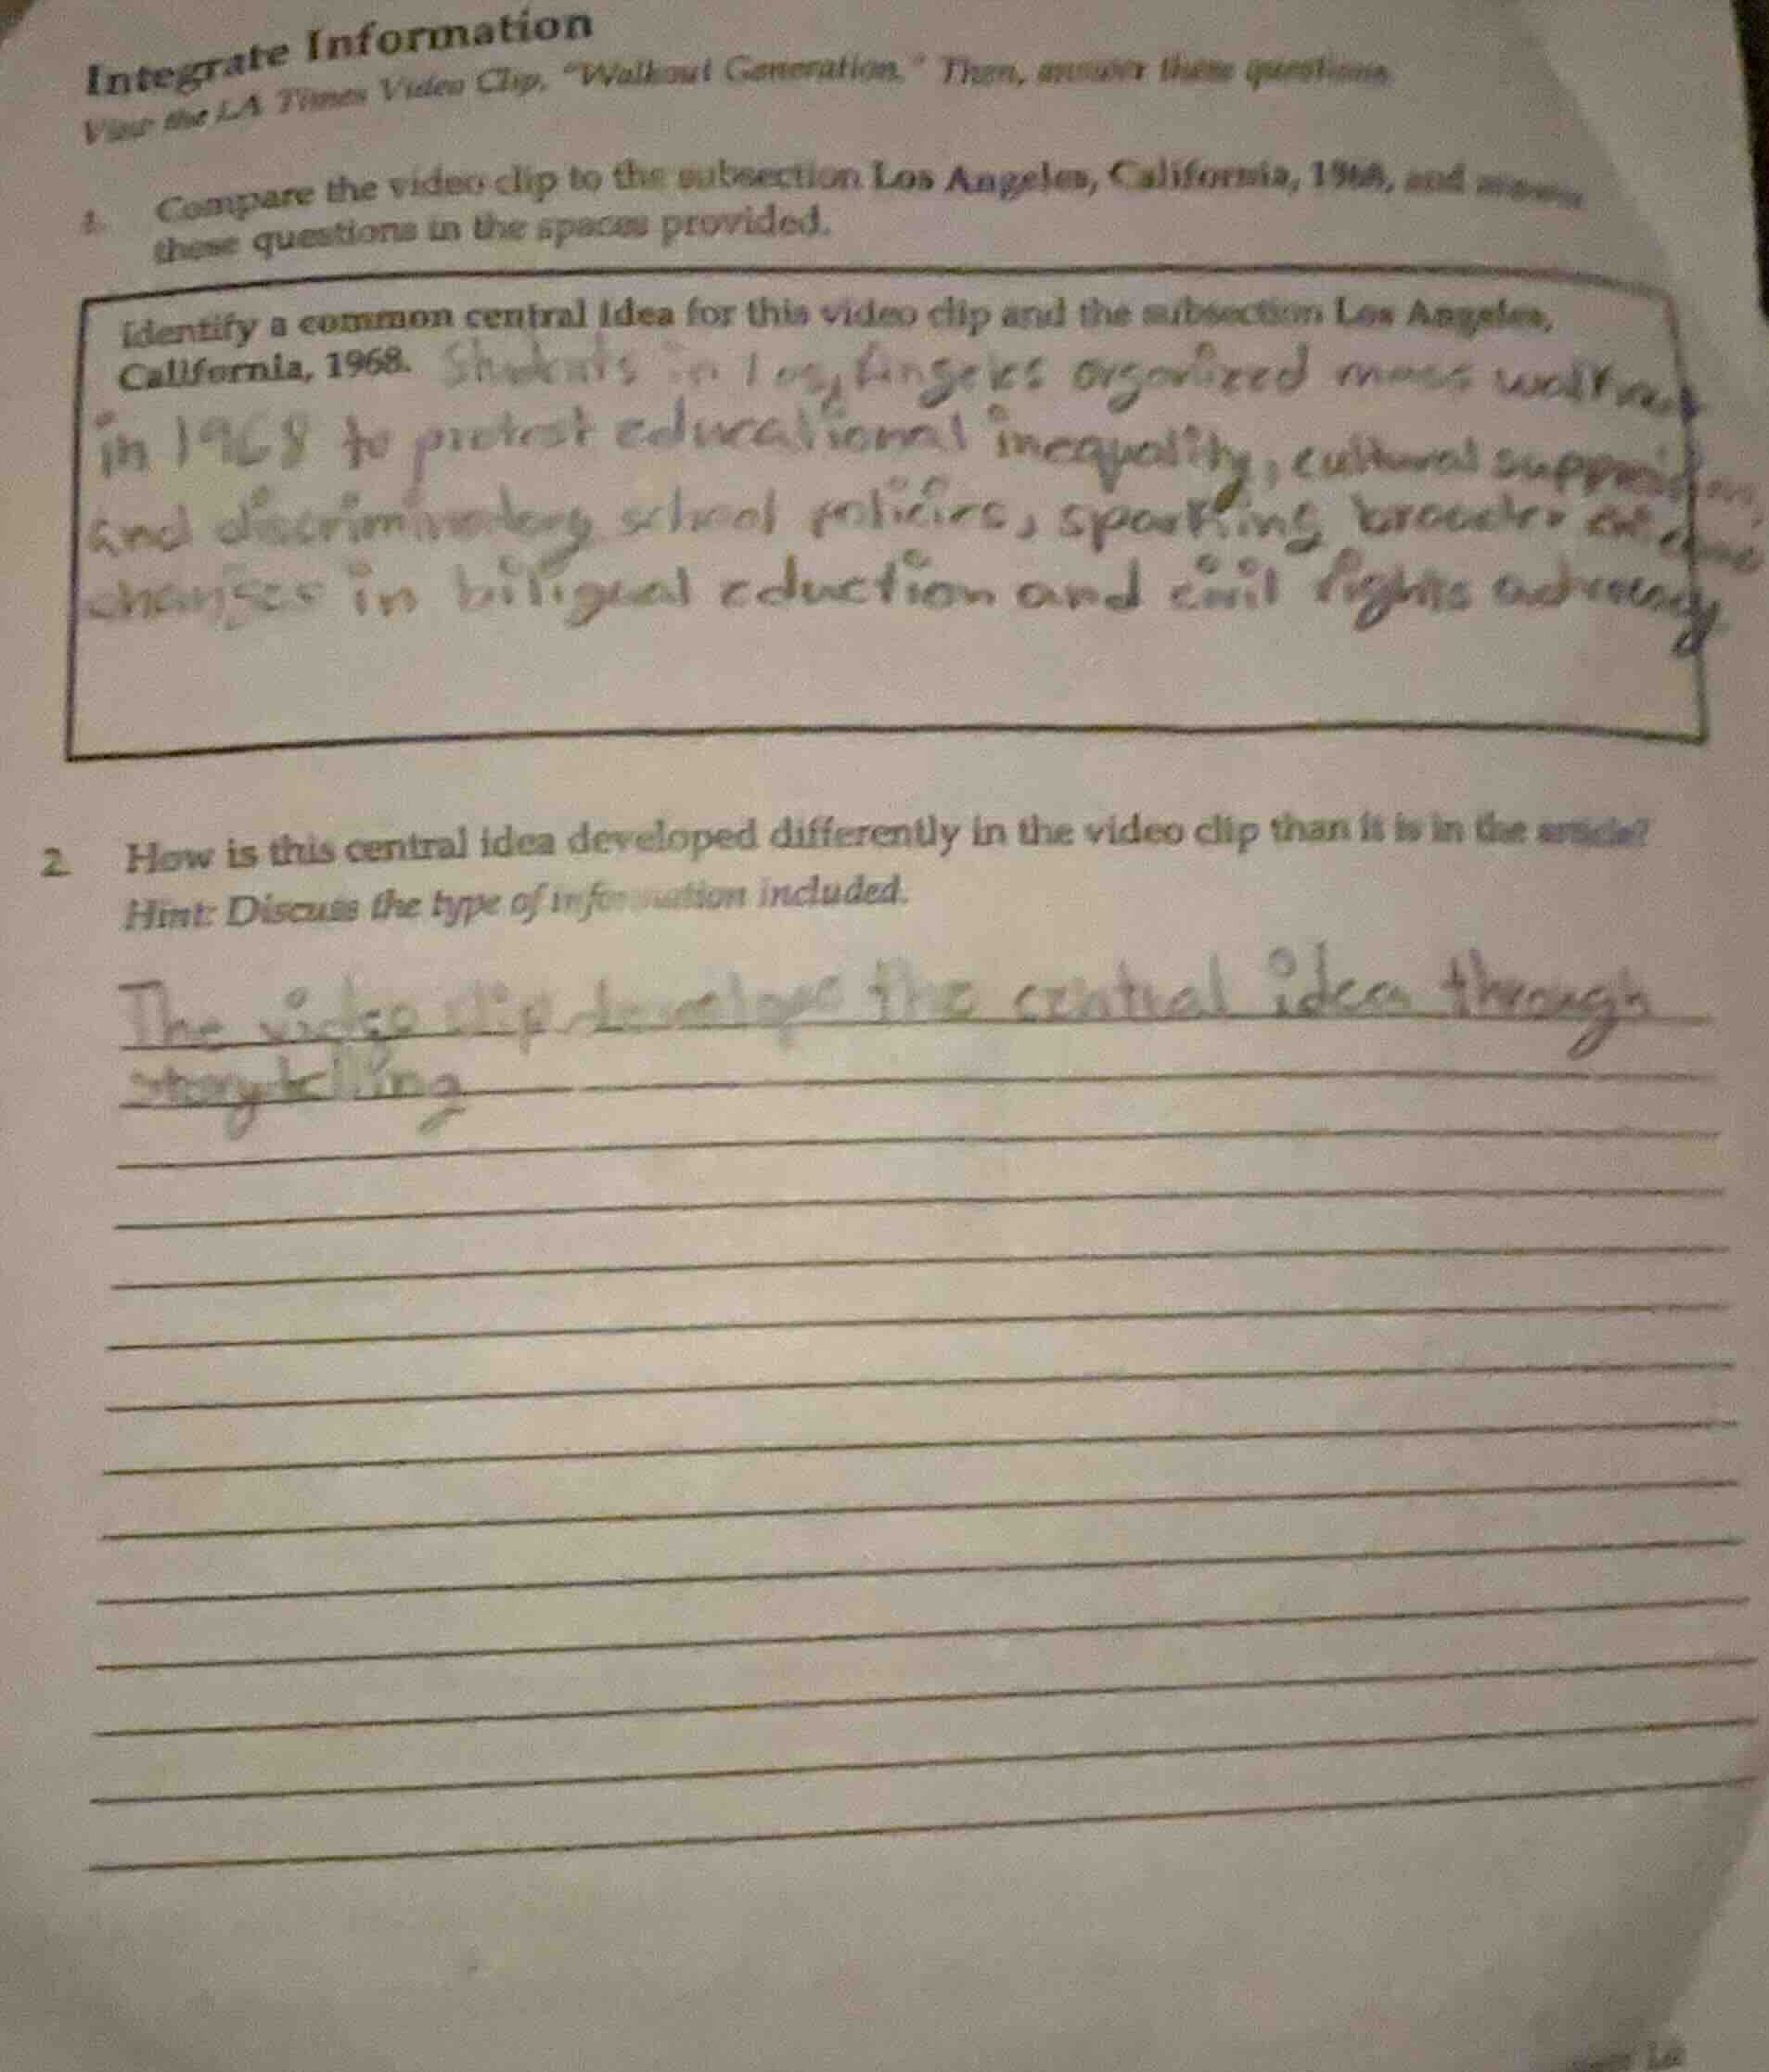 Integrate Information
View the LA Times Video Clip, "Walkout Generation." Then, answer these questions.
1. Compare the video clip to the subsection Los Angeles, California, 1968, and
these questions in the spaces provided.
Identify a common central idea for this video clip and the subsection Los Angeles,
California, 1968. Students in Los Angeles organized mass
in 1968 to protest educational inequality, cultural
and discriminatory school policies, sparking broader
changes in biligual eduction and civil rights advocacy
2. How is this central idea developed differently in the video clip than it is in the article?
Hint: Discuss the type of information included.
The video clip develops the central idea through
storytelling